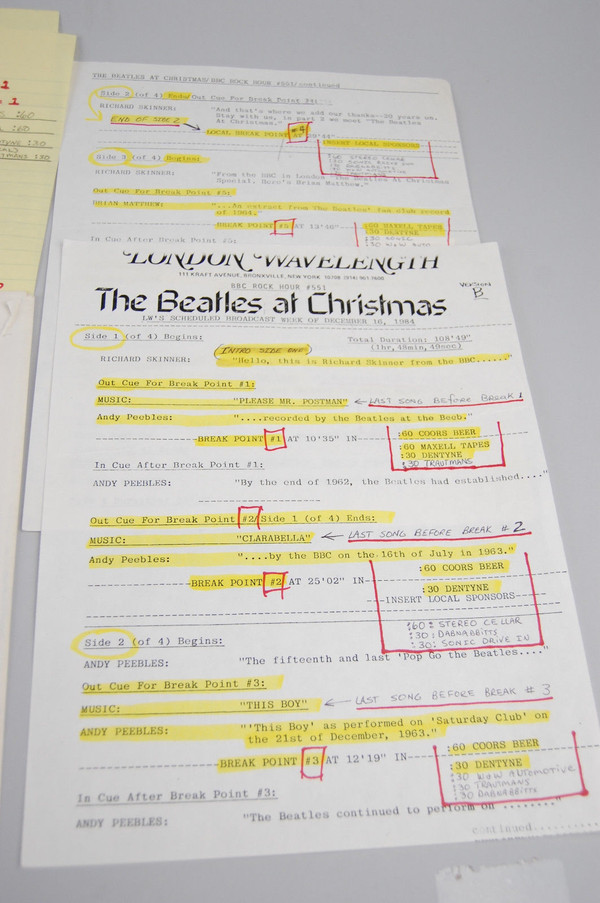 1
1
:60
:60
:30
:30
THE BEATLES AT CHRISTMAS/BBC ROCK HOUR #551/continued
Side 2 (of 4) Ends/Out Cue For Break Point #4:
RICHARD SKINNER: "And that's where we add our thanks--20 years on.
Stay with us, in part 3 we meet "The Beatles
At Christmas."
END OF SIDE 2
LOCAL BREAK POINT #4 AT
INSERT LOCAL SPONSORS
Side 3 (of 4) Begins:
RICHARD SKINNER: "From the BBC in London "The Beatles At Christmas
Special. Here's Brian Matthew."
Out Cue For Break Point #5:
BRIAN MATTHEW: "...An extract from The Beatles' fan club record
of 1964."
BREAK POINT #5 AT 13'46" IN
:60 MAXELL TAPES
:30 DENTYNE
In Cue After Break Point #5:
LONDON WAVELENGTH
111 KRAFT AVENUE, BRONXVILLE, NEW YORK 10708 (914) 961-7600
BBC ROCK HOUR #551
The Beatles at Christmas
VERSION B
LW'S SCHEDULED BROADCAST WEEK OF DECEMBER 16, 1984
Side 1 (of 4) Begins: Total Duration: 108'49"
(1hr, 48min, 49sec)
INTRO SIDE ONE
RICHARD SKINNER: "Hello, this is Richard Skinner from the BBC....."
Out Cue For Break Point #1:
MUSIC: "PLEASE MR. POSTMAN" ← LAST SONG BEFORE BREAK 1
Andy Peebles: "....recorded by the Beatles at the Beeb."
BREAK POINT #1 AT 10'35" IN
:60 COORS BEER
:60 MAXELL TAPES
:30 DENTYNE
:30 TRAUTMANS
In Cue After Break Point #1:
ANDY PEEBLES: "By the end of 1962, the Beatles had established...."
Out Cue For Break Point #2/Side 1 (of 4) Ends:
MUSIC: "CLARABELLA" ← LAST SONG BEFORE BREAK # 2
Andy Peebles: "....by the BBC on the 16th of July in 1963."
BREAK POINT #2 AT 25'02" IN
:60 COORS BEER
:30 DENTYNE
INSERT LOCAL SPONSORS
:60: STEREO CELLAR
:30: DABNABBITS
:30: SONIC DRIVE IN
Side 2 (of 4) Begins:
ANDY PEEBLES: "The fifteenth and last 'Pop Go the Beatles...."
Out Cue For Break Point #3:
MUSIC: "THIS BOY" ← LAST SONG BEFORE BREAK # 3
ANDY PEEBLES: "'This Boy' as performed on 'Saturday Club' on
the 21st of December, 1963."
BREAK POINT #3 AT 12'19" IN
:60 COORS BEER
:30 DENTYNE
:30 WOW AUTOMOTIVE
:30 TRAUTMANS
:30 DABNABBITS
In Cue After Break Point #3:
ANDY PEEBLES: "The Beatles continued to perform on ........"
continued..........